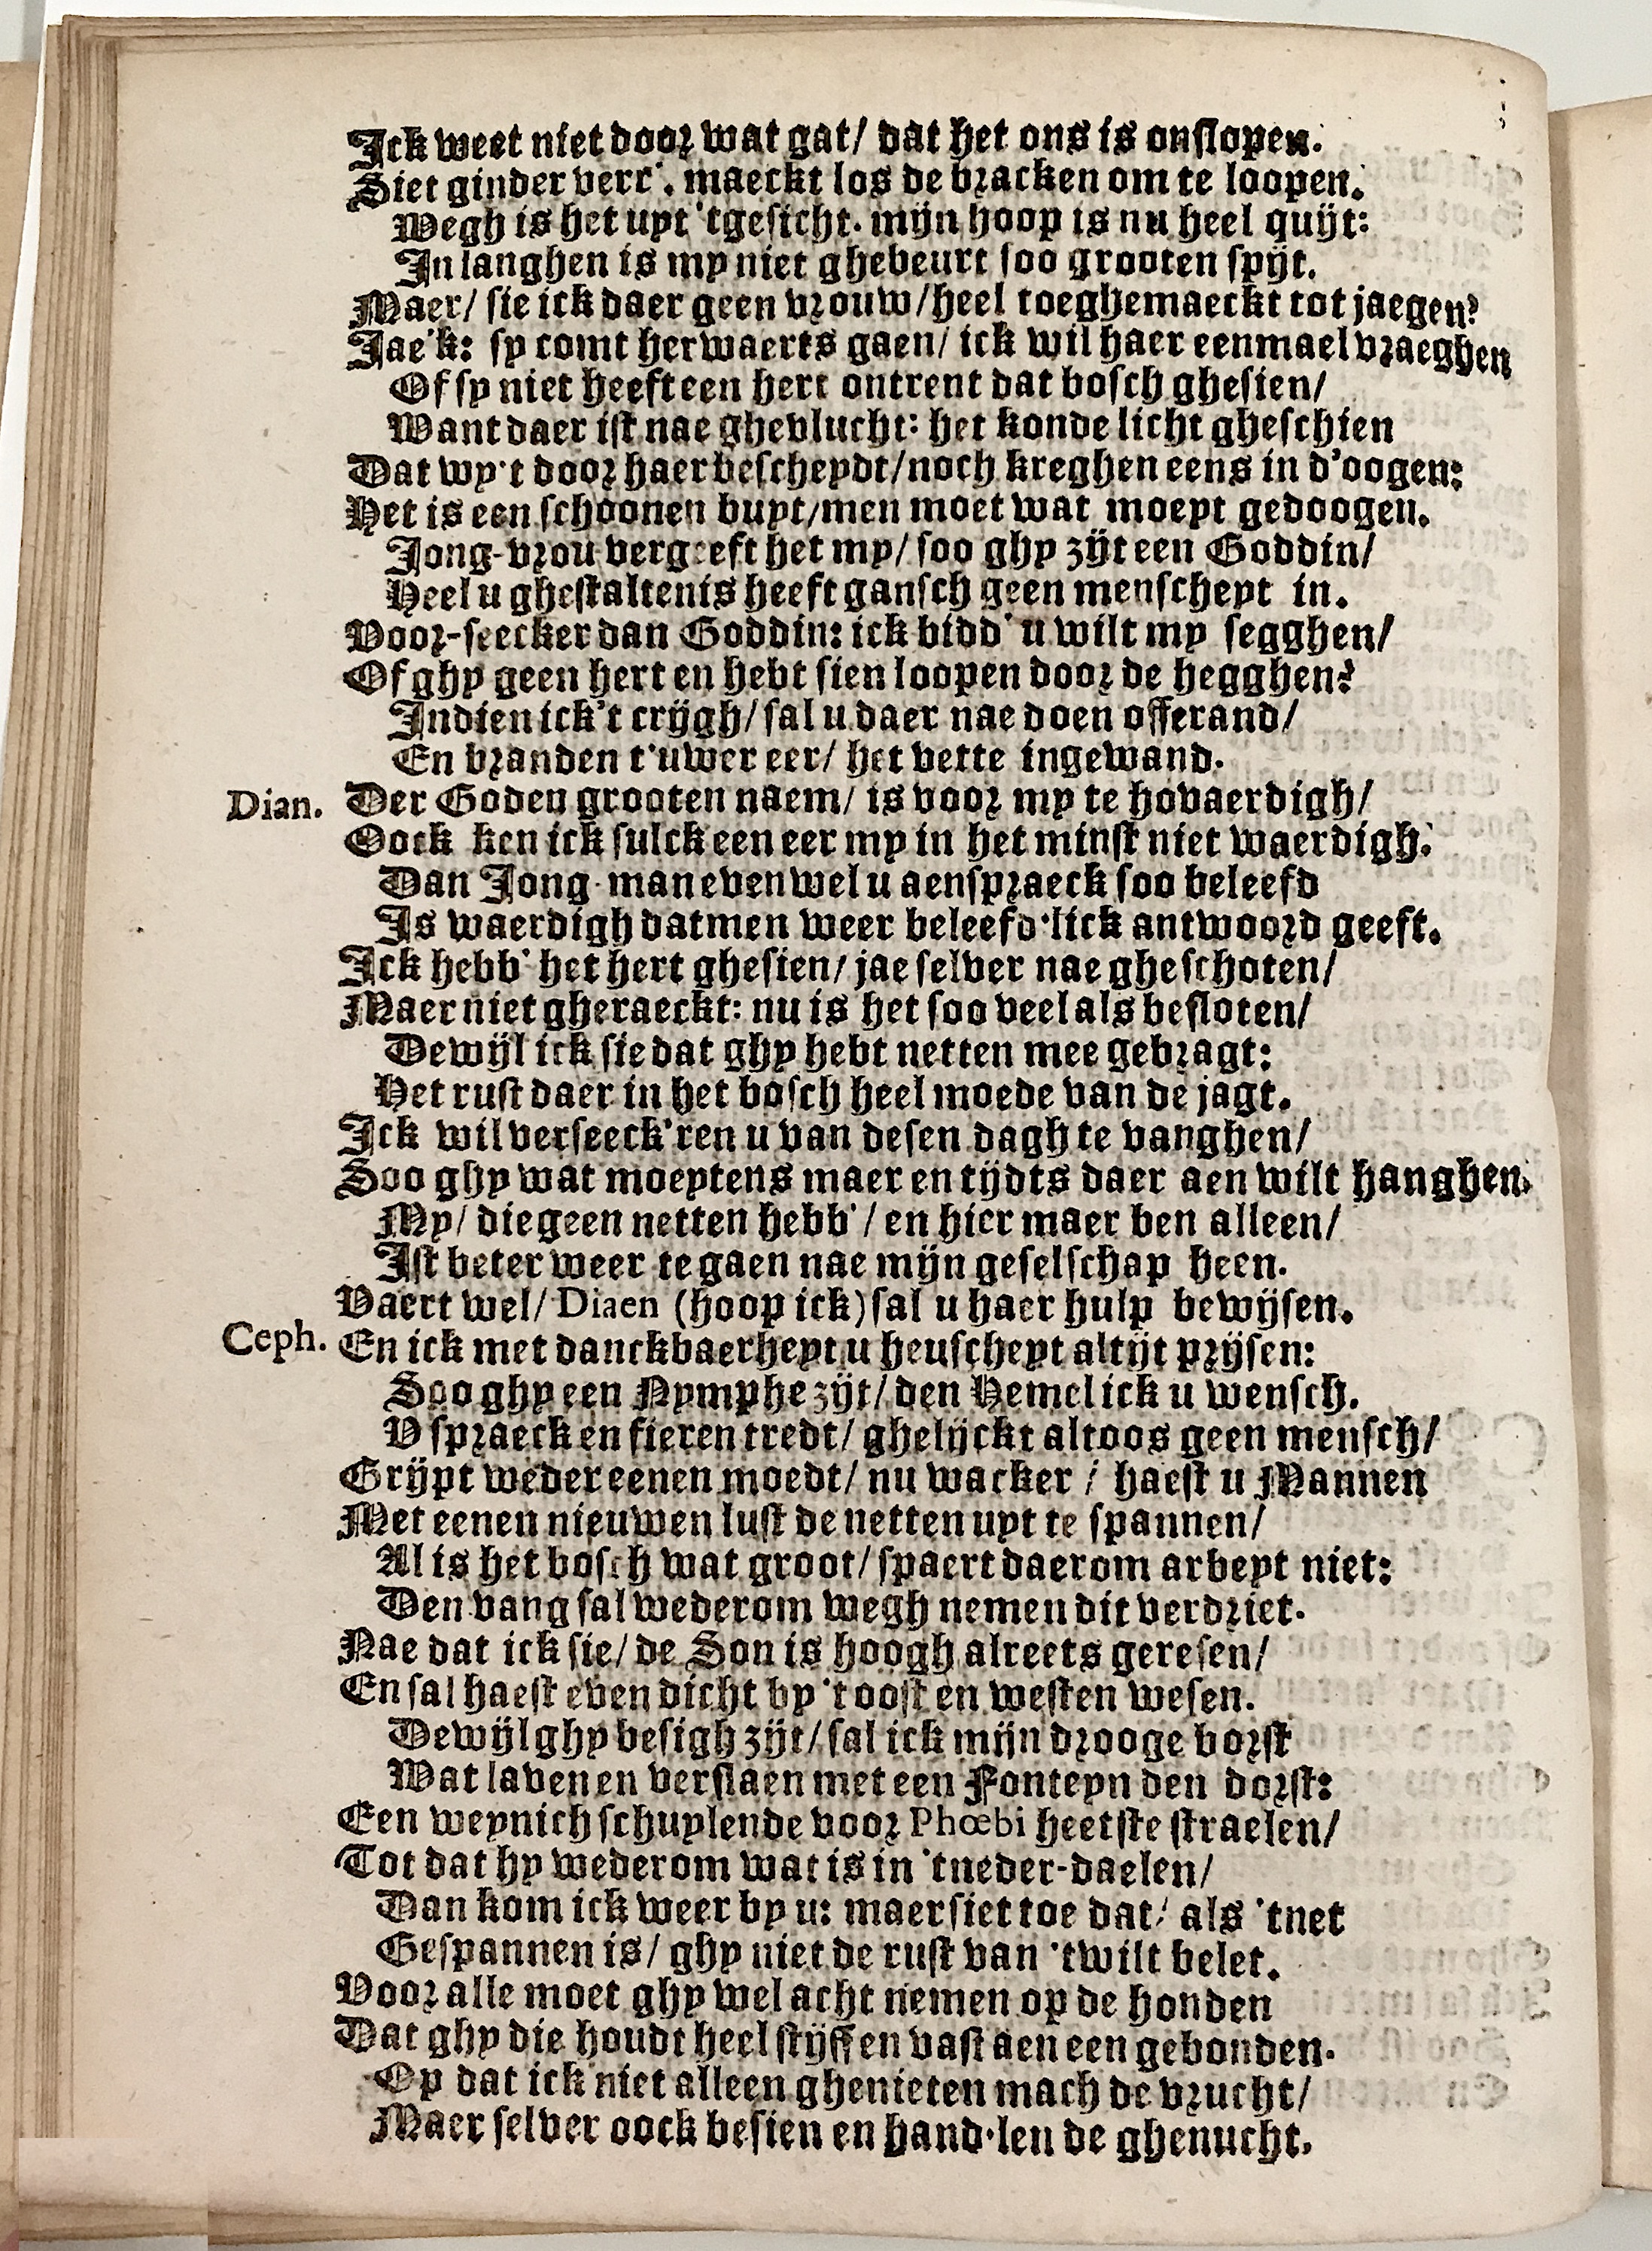 Ick weet niet door wat gat/ dat het ons is onslopen.
Siet ginder verr'. maeckt los de bracken om te loopen.
Wegh is het uyt 'tgesicht. mijn hoop is nu heel quijt:
In langhen is my niet ghebeurt soo grooten spijt.
Maer/ sie ick daer geen vrouw/ heel toeghemaeckt tot jaegen?
Jae'k: sy comt herwaerts gaen/ ick wil haer eenmael vraeghen
Of sy niet heeft een hert ontrent dat bosch ghesien/
Want daer ist nae ghevlucht: het konde licht gheschien
Dat wy't door haer bescheydt/ noch kreghen eens in d'oogen:
Het is een schoonen buyt/ men moet wat moeyt gedoogen.
Jong-vrou vergeeft het my/ soo ghy zijt een Goddin/
Heel u ghestaltenis heeft gansch geen menscheyt in.
Voor-seecker dan Goddin: ick bidd' u wilt my segghen/
Of ghy geen hert en hebt sien loopen door de hegghen?
Indien ick't crijgh/ sal u daer nae doen offerand/
En branden t'uwer eer/ het vette ingewand.
Dian. Der Goden grooten naem/ is voor my te hovaerdigh/
Oock ken ick sulck een eer my in het minst niet waerdigh.
Dan Jong-man evenwel u aenspraeck soo beleefd
Is waerdigh datmen weer beleefd-lick antwoord geeft.
Ick hebb' het hert ghesien/ jae selver nae gheschoten/
Maer niet gheraeckt: nu is het soo veel als besloten/
Dewijl ick sie dat ghy hebt netten mee gebragt:
Het rust daer in het bosch heel moede van de jagt.
Ick wil verseeck'ren u van desen dagh te vanghen/
Soo ghy wat moeytens maer en tijdts daer aen wilt hanghen.
My/ die geen netten hebb'/ en hier maer ben alleen/
Ist beter weer te gaen nae mijn geselschap heen.
Vaert wel/ Diaen (hoop ick) sal u haer hulp bewijsen.
Ceph. En ick met danckbaerheyt u heuscheyt altijt prijsen:
Soo ghy een Nymphe zijt/ den Hemel ick u wensch.
V spraeck en fieren tredt/ ghelijckt altoos geen mensch/
Grijpt weder eenen moedt/ nu wacker / haest u Mannen
Met eenen nieuwen lust de netten uyt te spannen/
Al is het bosch wat groot/ spaert daerom arbeyt niet:
Den vang sal wederom wegh nemen dit verdriet.
Nae dat ick sie/ de Son is hoogh alreets geresen/
En sal haest even dicht by 't oost en westen wesen.
Dewijl ghy besigh zijt/ sal ick mijn drooge borst
Wat laven en verslaen met een Fonteyn den dorst:
Een weynich schuylende voor Phœbi heetste straelen/
Tot dat hy wederom wat is in 'tneder-daelen/
Dan kom ick weer by u: maer siet toe dat/ als 'tnet
Gespannen is/ ghy niet de rust van 'twilt belet.
Voor alle moet ghy wel acht nemen op de honden
Dat ghy die houdt heel stijff en vast aen een gebonden.
Op dat ick niet alleen ghenieten mach de vrucht/
Maer selver oock besien en hand-len de ghenucht.